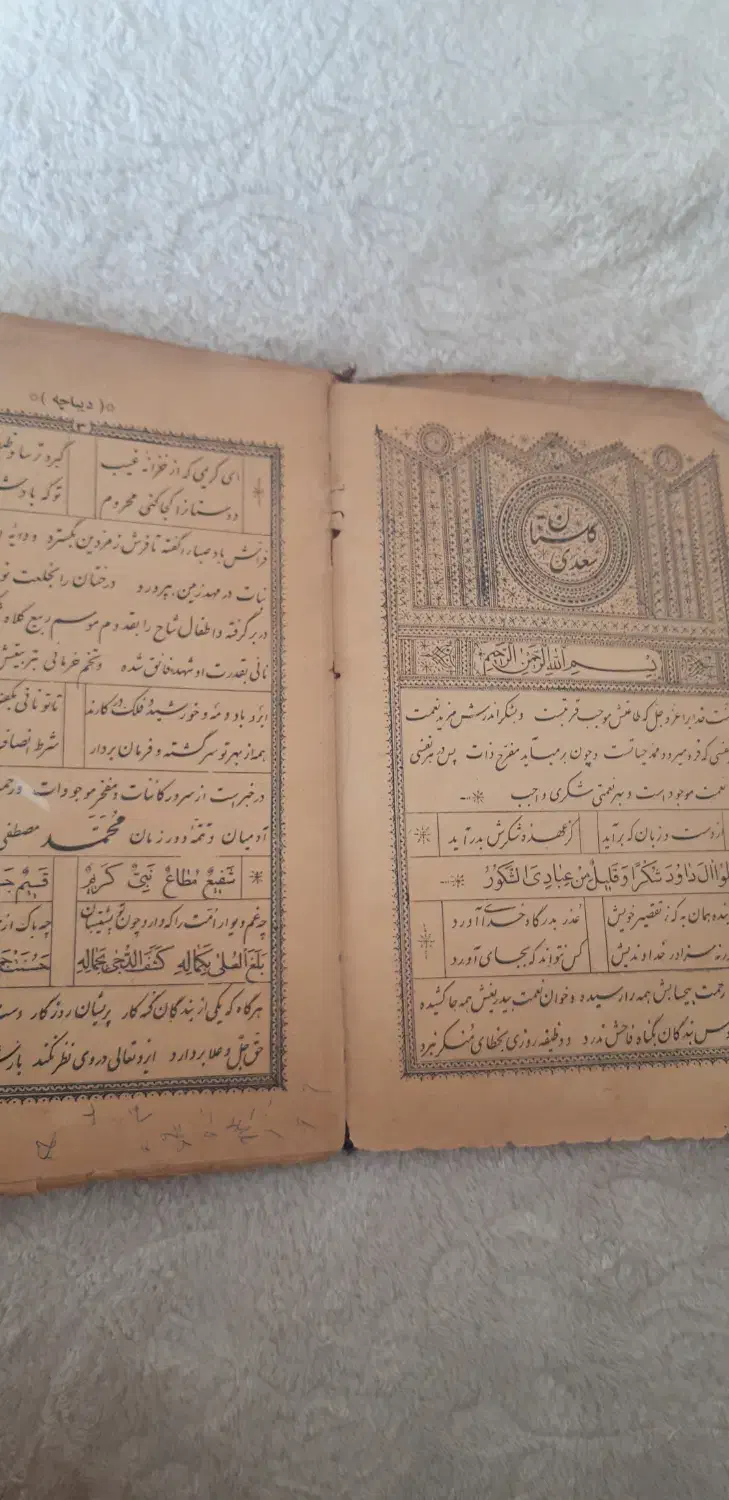 گلستان
سعدی
بسم الله الرحمن الرحیم
منت خدایرا عز و جل که طاعتش موجب قربتست و بشکر اندرش مزید نعمت
نفسی که فرو میرود ممد حیاتست و چون بر میآید مفرح ذات پس در هر نفسی
نعمت موجود است و بهر نعمتی شکری واجب
از دست و زبان که برآید کز عهدهٔ شکرش بدر آید
اعملوا آل داود شکرا و قلیل من عبادی الشکور
بنده همان به که ز تقصیر خویش عذر بدرگاه خدا آورد
ورنه سزاوار خداوندیش کس نتواند که بجای آورد
رحمت بیحسابش همه را رسیده و خوان نعمت بیدریغش همه جا کشیده
ناموس بندگان بگناه فاحش ندرد و وظیفه روزی بخطای منکر نبرد
(دیباچه)
۳
ای کریمی که از خزانه غیب گبر و ترسا وظیفه
دوستانرا کجا کنی محروم تو که با دشمن
فراش باد صبا را گفته تا فرش زمردین بگسترد و دایه
نبات در مهد زمین بپرورد درختان را بخلعت
در بر گرفته و اطفال شاخ را بقدوم موسم ربیع کلاه
نائی بقدرت او شهد فائق شده و تخم خرمائی بتربیتش
ابر و باد و مه و خورشید و فلک در کارند تا تو نانی بکف
همه از بهر تو سرگشته و فرمان بردار شرط انصاف
در خبر است از سرور کائنات و مفخر موجودات و رحمت
آدمیان و تتمهٔ دور زمان محمد مصطفی
شفیع مطاع نبی کریم قسیم
چه غم دیوار امت را که دارد چون تو پشتیبان چه باک از
بلغ العلی بکماله کشف الدجی بجماله حسنت
هرگاه که یکی از بندگان گنه کار پریشان روزگار دست
حق جل و علا بردارد ایزد تعالی در وی نظر نکند باز